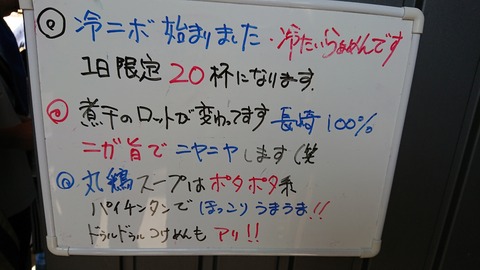 ◎ 冷ニボ 始まりました・冷たいらぁめんです
1日限定 20杯になります.
◎ 煮干のロットが変わってます 長崎100%
ニガ旨で ニヤニヤします(笑
◎ 丸鶏スープは ポタポタ系
パイチンタンで ほっこり うまうま!!
ドゥルドゥルつけめんも アリ!!